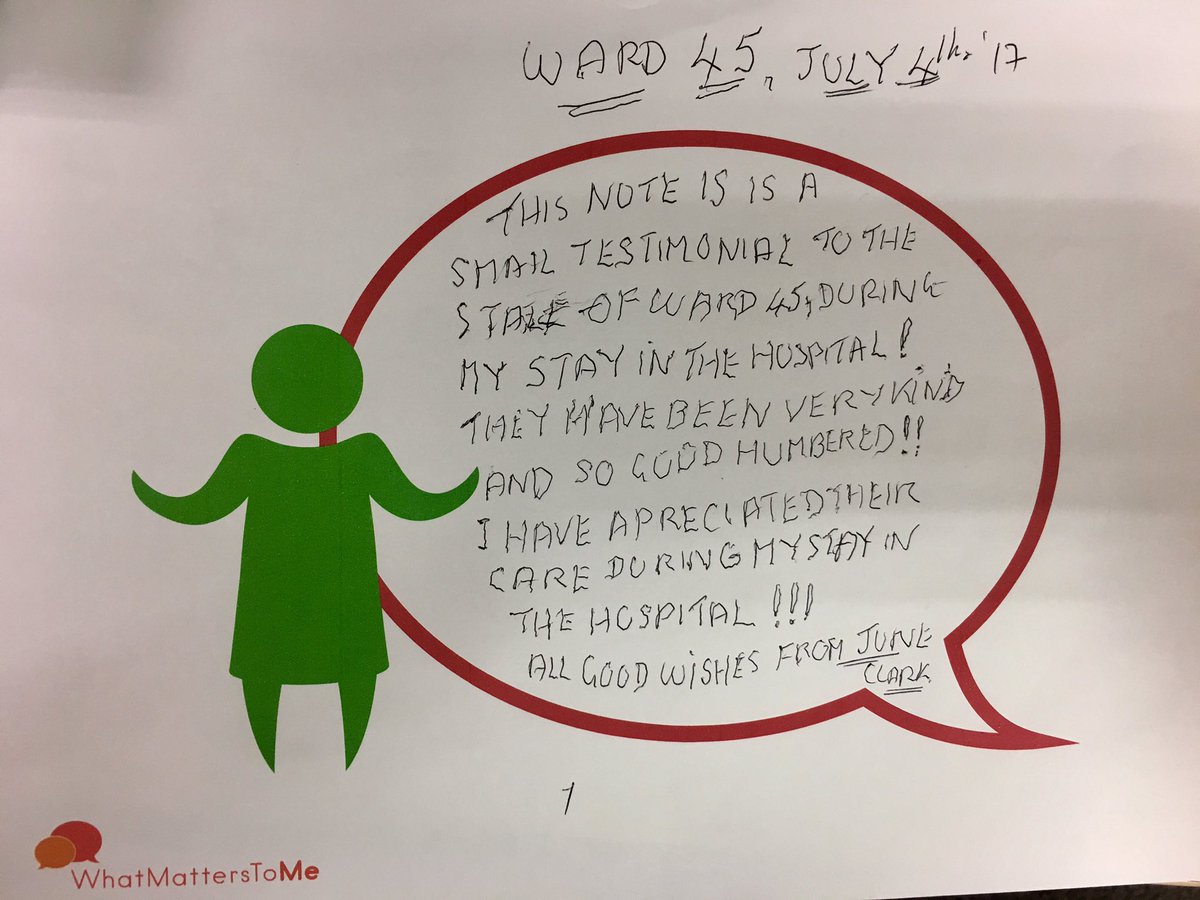 WARD 45, JULY 4th, '17
THIS NOTE IS IS A
SMALL TESTIMONIAL TO THE
STAFF OF WARD 45, DURING
MY STAY IN THE HOSPITAL!
THEY HAVE BEEN VERY KIND
AND SO GOOD HUMBERED!!
I HAVE APRECIATED THEIR
CARE DURING MY STAY IN
THE HOSPITAL!!!
ALL GOOD WISHES FROM JUNE
CLARK
1
WhatMattersToMe